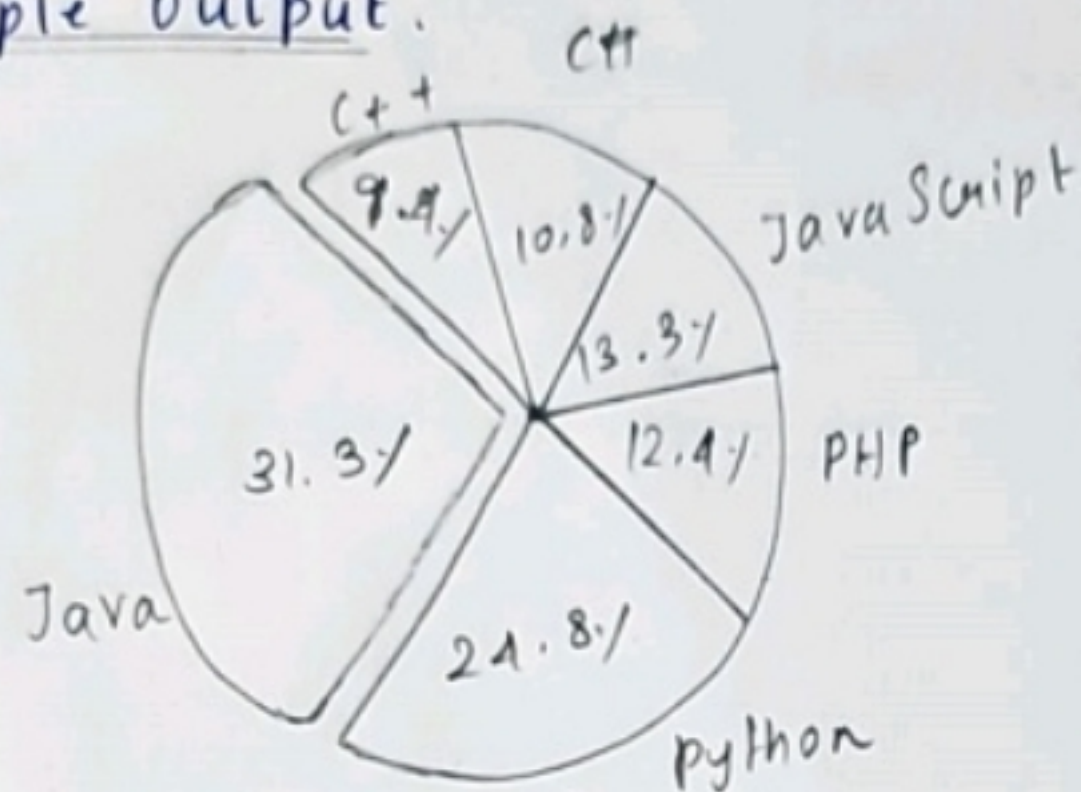 ple output.
C++
9.4%
10.8%
JavaScript
13.3%
12.4%
PHP
31.3%
Java
24.8%
python